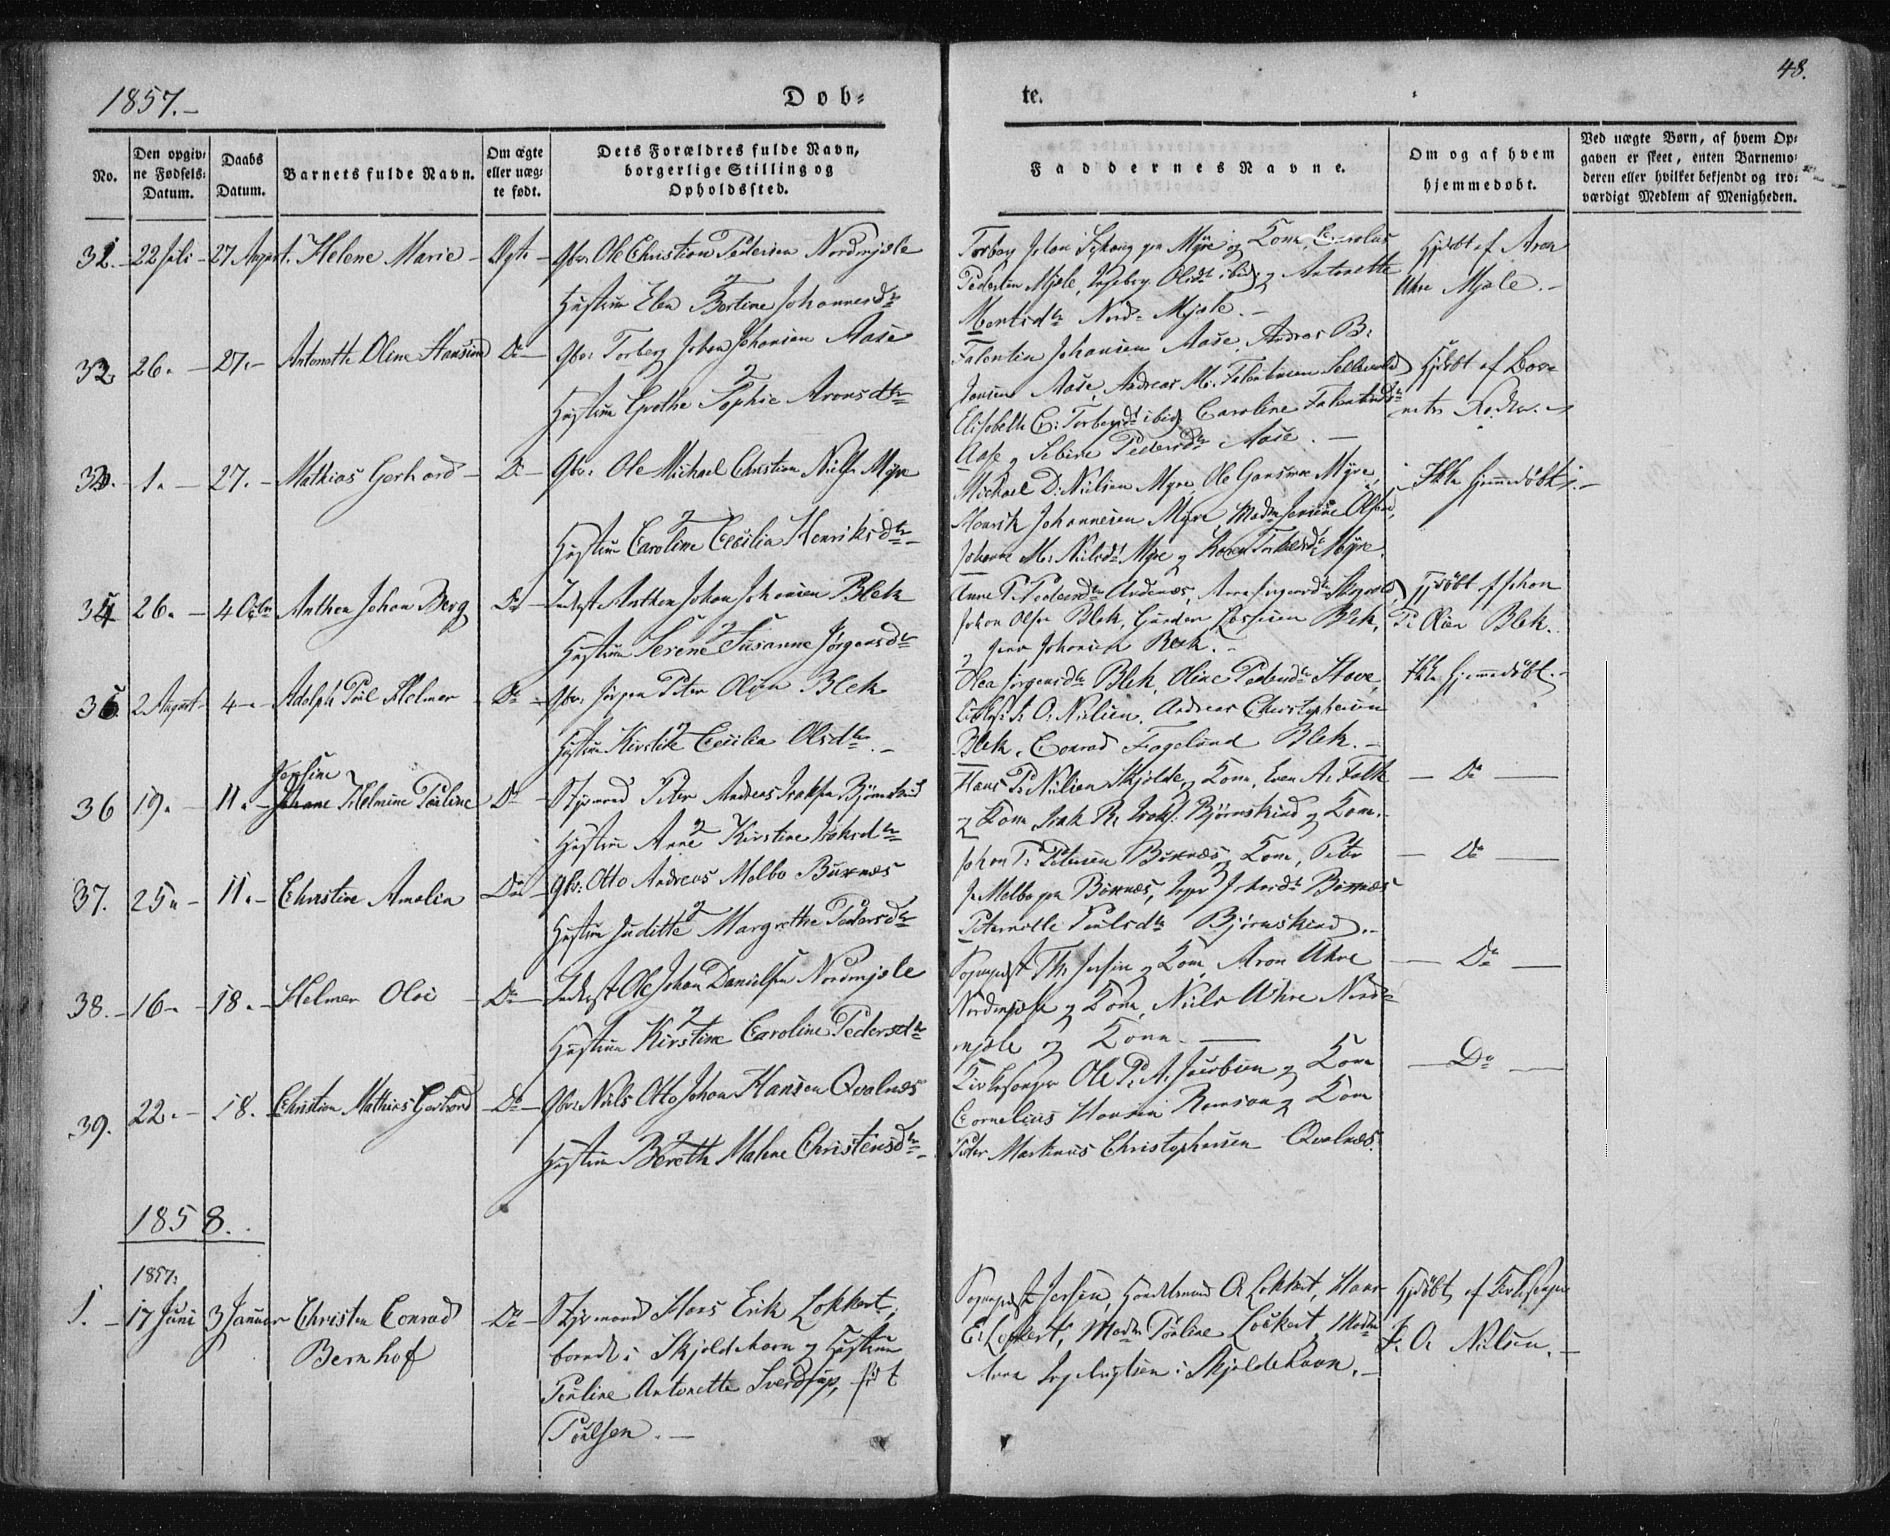 1857.–
Døb-
te.
48.
No.
Den opgiv-
ne Fødsels-
Datum.
Daabs
Datum.
Barnets fulde Navn.
Om ægte
eller uæg-
te født.
Dets Forældres fulde Navn,
borgerlige Stilling og
Opholdssted.
Faddernes Navne.
Om og af hvem
hjemmedøbt.
Ved uægte Børn, af hvem Op-
gaven er skeet, enten Barnemo-
deren eller hvilket bekjendt og tro-
værdigt Medlem af Menigheden.
31. – 22 Juli – 27 August. Helene Marie – Ægte – Gbr. Ole Christian Pedersen Nordmjele
Hustru Elen Bertine Johannesdtr
Torberg Johan paa Myre og Kone,
Pedersen Mjele, Ingeborg Olsdtr ibid, og Antonette
Nord-Mjele. –
Hjdøbt af Aron
Uhre Mjele. –
32. 26. – 27. – Antonette Oline Hansine Do – Gbr. Torberg Johan Johansen Aase
Hustru Grethe Sophie Aronsdtr
Falentin Johansen Aase, Andreas B.
Jensen Aase, Andreas M. Falentinsen
Elisabeth C. Torbergsdtr ibid, Caroline Falentinsdtr
Aase og Pedersdtr Aase. –
Hjdøbt af
33. – 1. – 27. – Mathias Gerhard – Do – Gbr. Ole Michael Christian Niels. Myre
Hustru Caroline Cecilia Henriksdtr –
Michael D. Nielsen Myre, Ole Myre,
Henrik Johannesen Myre, Madm
Johanna M. Nielsdtr Myre og Karen Myre.
Ikke hjemmedøbt. –
34 26. – 4 Octbr Anthon Johan Berg Do – Inderst Anthon Johan Johansen Blek
Hustru Serene Susanne Jørgensdtr
Anne P. Pedersdtr Andenæs, Anne
Johan Olsen Blek, Blek,
og Jens Johansen Blek. –
Hjdøbt af Johan
P. Olsen Blek.
35. 2 August – 4 – Adolph Paul Helmer Do – Gbr. Jørgen Peter Olsen Blek
Hustru Kirstine Cecilia Olsdtr. –
Olea Jørgensdtr Blek, Oline Pedersdtr Stave,
O. Nielsen, Andreas Christophersen
Blek, Conrad Fagelund Blek. –
Ikke hjemmedøbt. –
Josefine
36 19. – 11. – Johane Helmine Pauline Do – Styrmand Peter Andreas Isaksen Bjørnskind
Hustru Anne Kirstine Isaksdtr
Hans P. Nielsen Skjolde, og Kone, Even A. Falk
og Kone, Isak R. Isaks. Bjørnskind og Kone. –
– Do –
37. 25. – 11. – Christine Amalia Do – Gbr. Otto Andreas Melbo Buxnæs
Hustru Juditte Margrethe Pedersdtr
Johan T. Petersen Buxnæs, og Kone, Peter
J. Melbo paa Buxnæs, Inger Johansdtr Buxnæs
Peternille Paulsdtr Bjørnskind. –
– Do –
38. – 16. – 18. – Helmer Olai – Do – Inderst Ole Johan Danielsen Nordmjele
Hustru Kirstine Caroline Pedersdtr
Sognepræst Th. Jersin og Kone, Aron Uhre
Nordmjele og Kone, Niels Uhre Nord-
mjele og Kone. –
– Do –
39. 22. – 18. – Christian Mathias Gerhard – Do – Gbr. Niels Otto Johan Hansen Qvalnæs
Hustru Bereth Malene Christensdtr –
Kirkesanger Ole P. A. Jacobsen og Kone
Cornelius Hansen Ramsaa og Kone
Peter Martinus Christophersen Qvalnæs.
– Do –
1858.
1857.
1. – 17 Juni 3 Januar Christen Conrad – Do – Styrmand Hans Erik Lokkert,
Bernhof
boende i Skjoldehavn og Hustru
Pauline Antonette Sverdrup, født
Poulsen. –
Sognepræst Jersin, Handelsmand O. Lokkert, Hans
E. Lokkert, Madm Pauline Lokkert, Madm
Anna Ingebrigtsen i Skjoldehavn. –
Hjdøbt af Kirkesanger
J. O. Nielsen. –